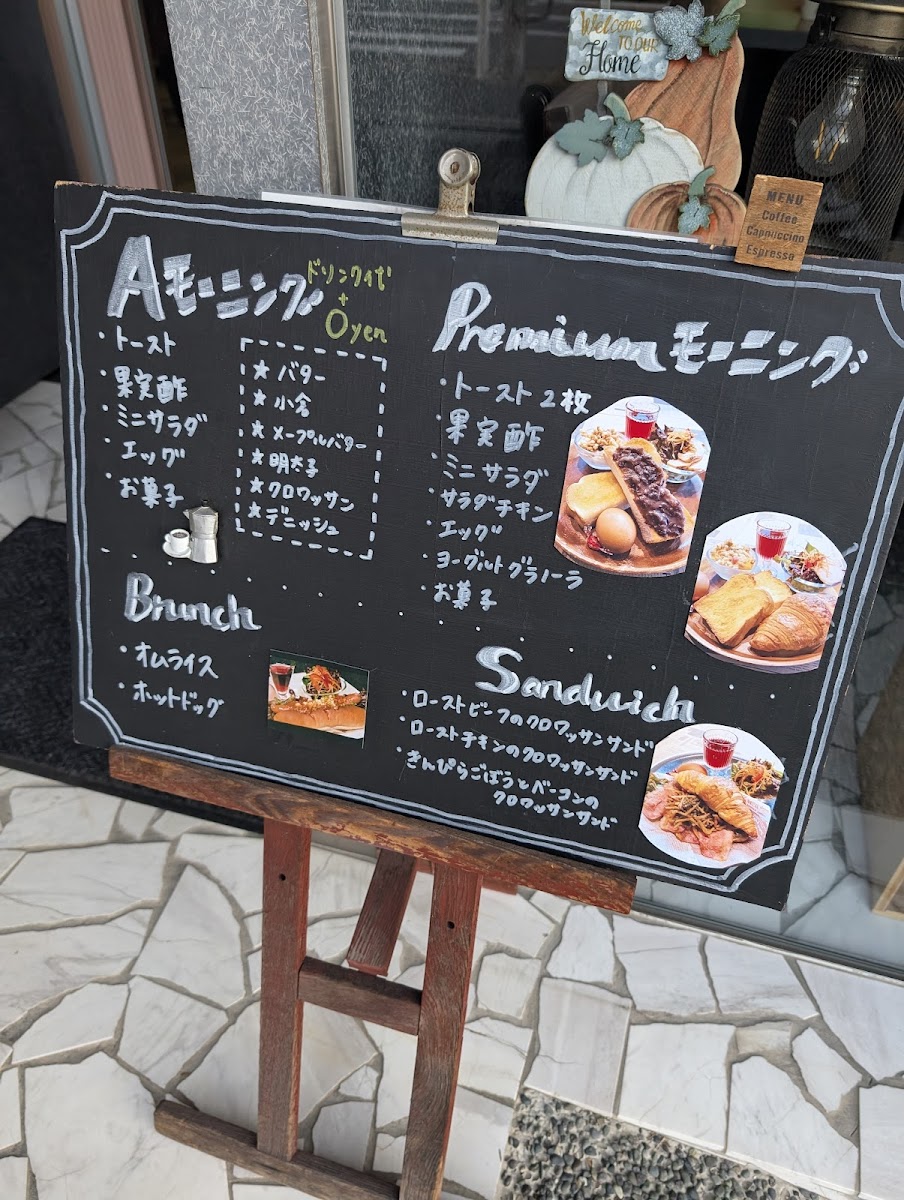 Welcome
TO OUR
Home
MENU
Coffee
Cappuccino
Espresso
Aモーニング
ドリンク代
+
0yen
・トースト
・果実酢
・ミニサラダ
・エッグ
・お菓子
★バター
★小倉
★メープルバター
★明太子
★クロワッサン
★デニッシュ
Premiumモーニング
・トースト2枚
・果実酢
・ミニサラダ
・サラダチキン
・エッグ
・ヨーグルトグラノーラ
・お菓子
Brunch
・オムライス
・ホットドッグ
Sandwich
・ローストビーフのクロワッサンサンド
・ローストチキンのクロワッサンサンド
・きんぴらごぼうとベーコンの
クロワッサンサンド